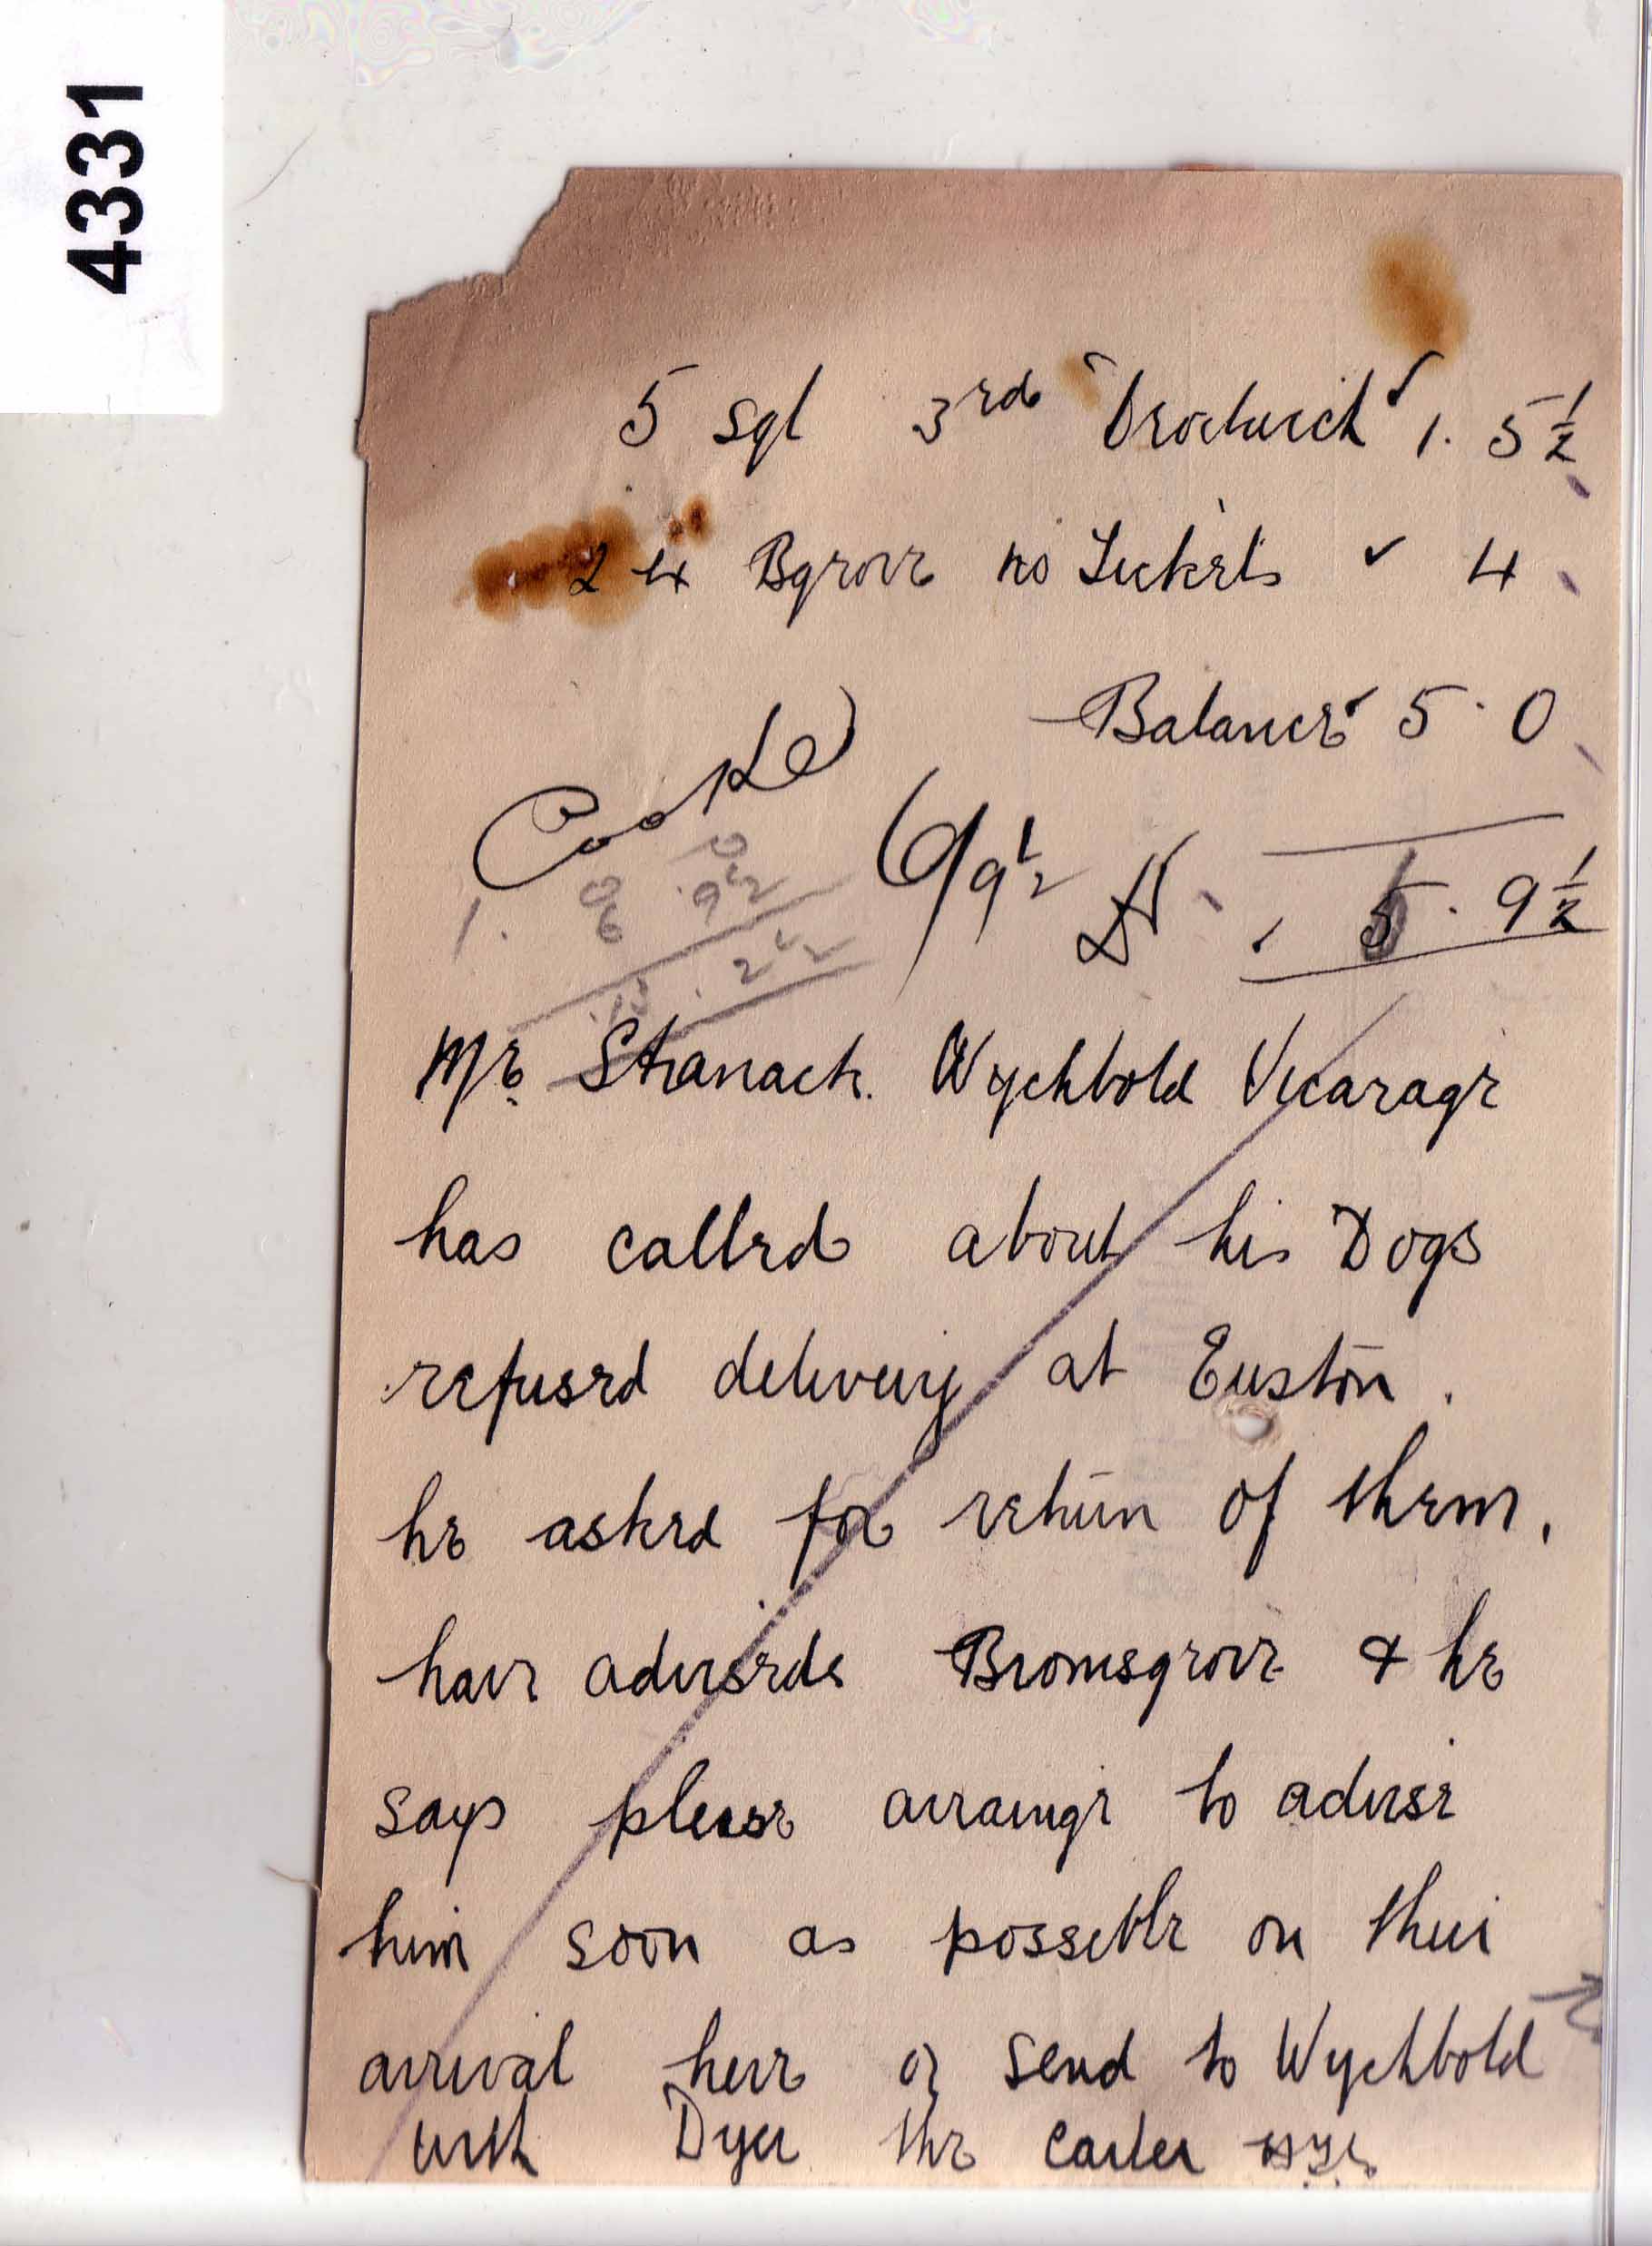 4331
5 sgl 3rd Droitwich ✓ 1. 5½
2 ex Bgrove no Tickets ✓ 4
Balance ✓ 5. 0
Cooke 6/9½ . 5. 9½
1.
Mr Stranack. Wychbold Vicarage
has called about his Dogs
refused delivery at Euston.
he asked for return of them.
have advised Bromsgrove & he
says please arrange to advise
him soon as possible on their
arrival here or send to Wychbold
with Dyer the carter